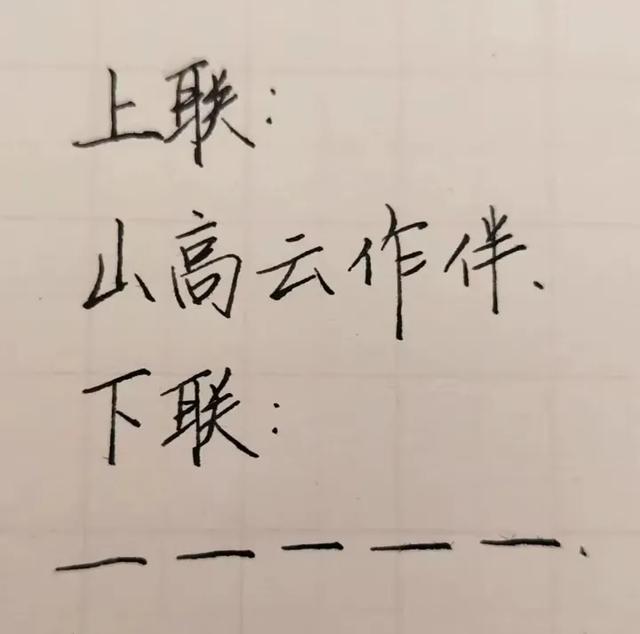 上联:
山高云作伴、
下联:
— — — — —.